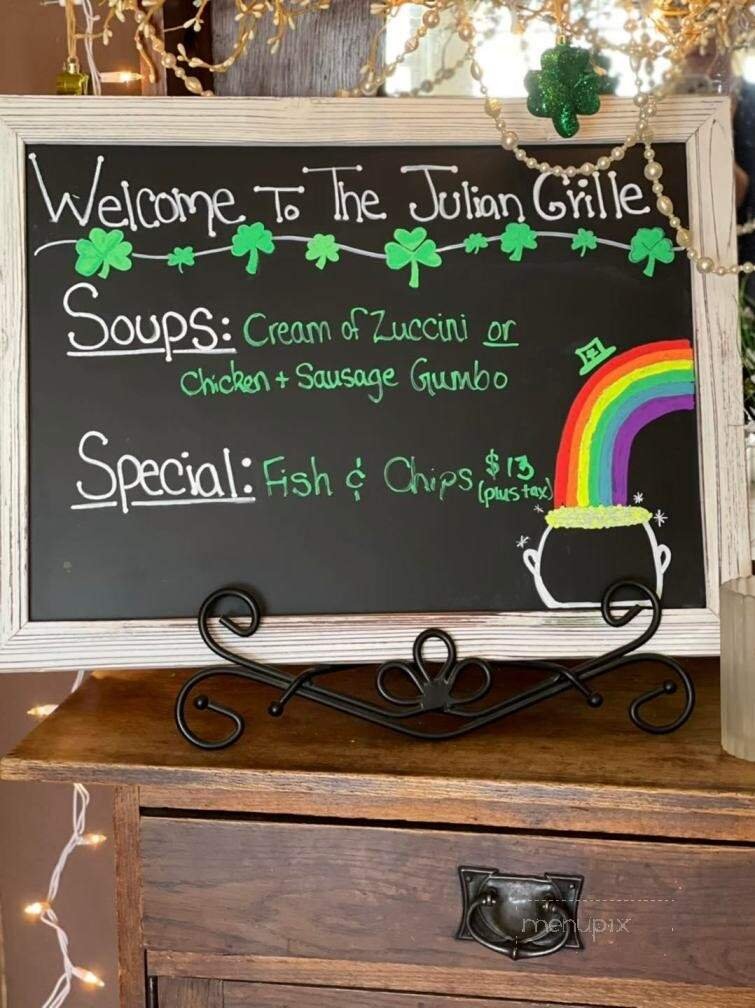 Welcome To The Julian Grille
Soups: Cream of Zuccini or
Chicken + Sausage Gumbo
Special: Fish & Chips $13
(plus tax)
menupix